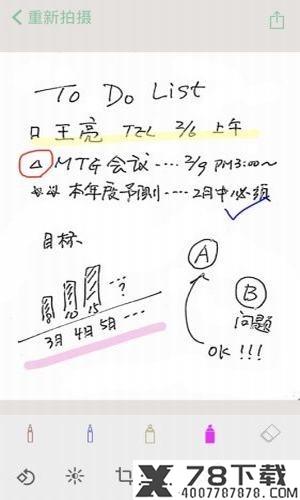 重新拍摄
To Do List
口 王亮 TEL 2/6 上午
△ MTG 会议 ···· 2/9 PM3:00~
※ 本年度予测 ···· 2月中必须
目标
A
8 10 15 ···?
3月 4月 5月 ···
B
问题
OK!!!
78下载
4007787878.COM